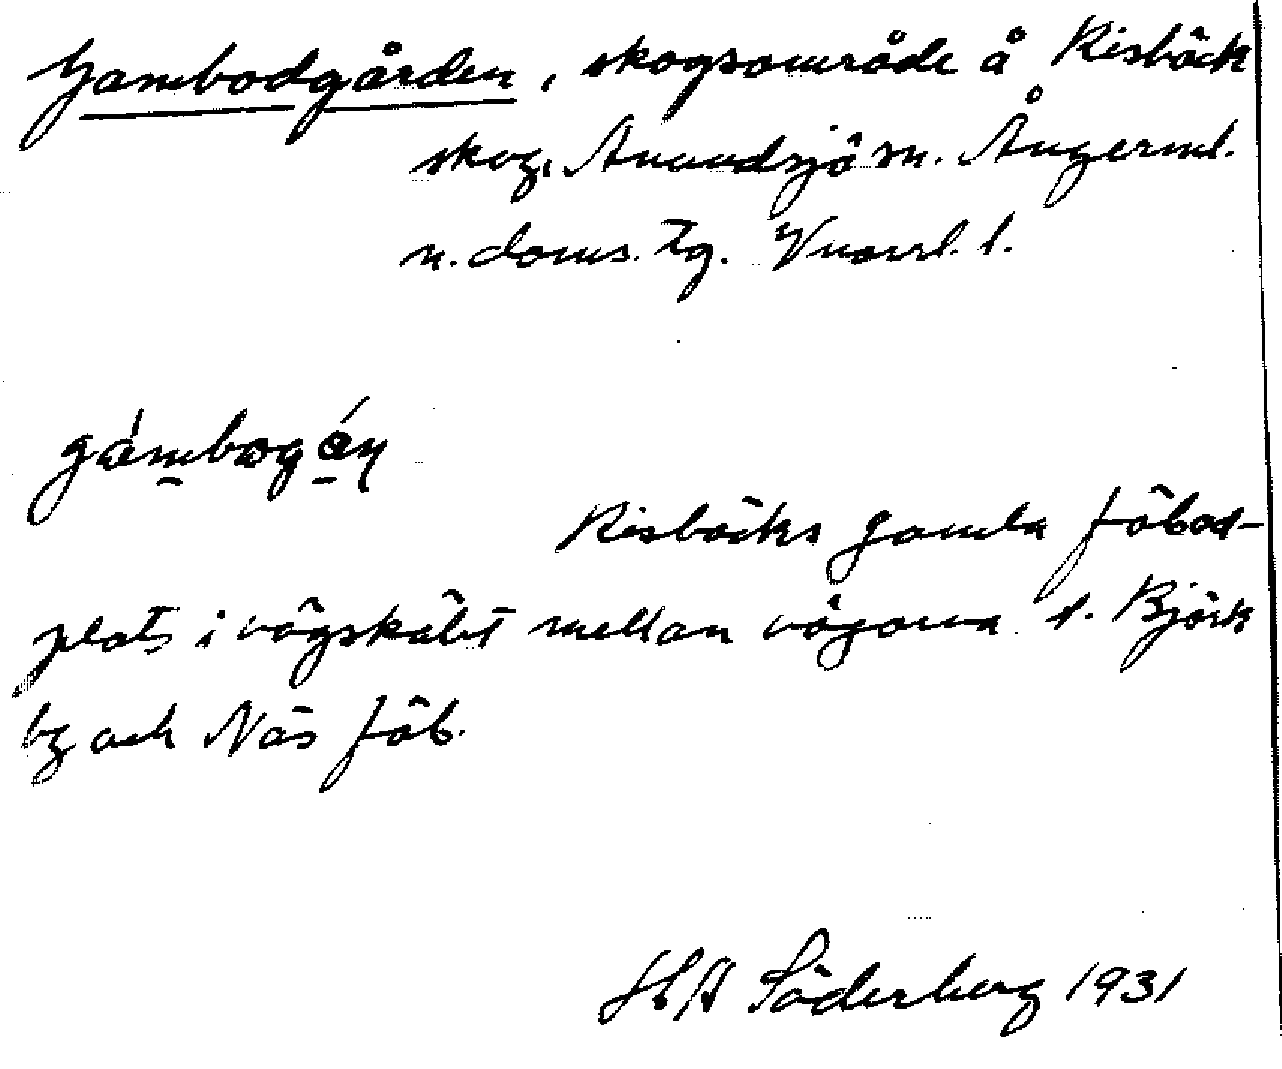 Gambodgården, skogsområde å Risbäck
skog, Anundsjö sn. Ångerml.
n. doms. tg. Vnorrl. l.
gámbogán
Risbäcks gamla fäbod-
plats i vägskälet mellan vägarna t. Björk
by och Näs fäb.
HA Söderberg 1931